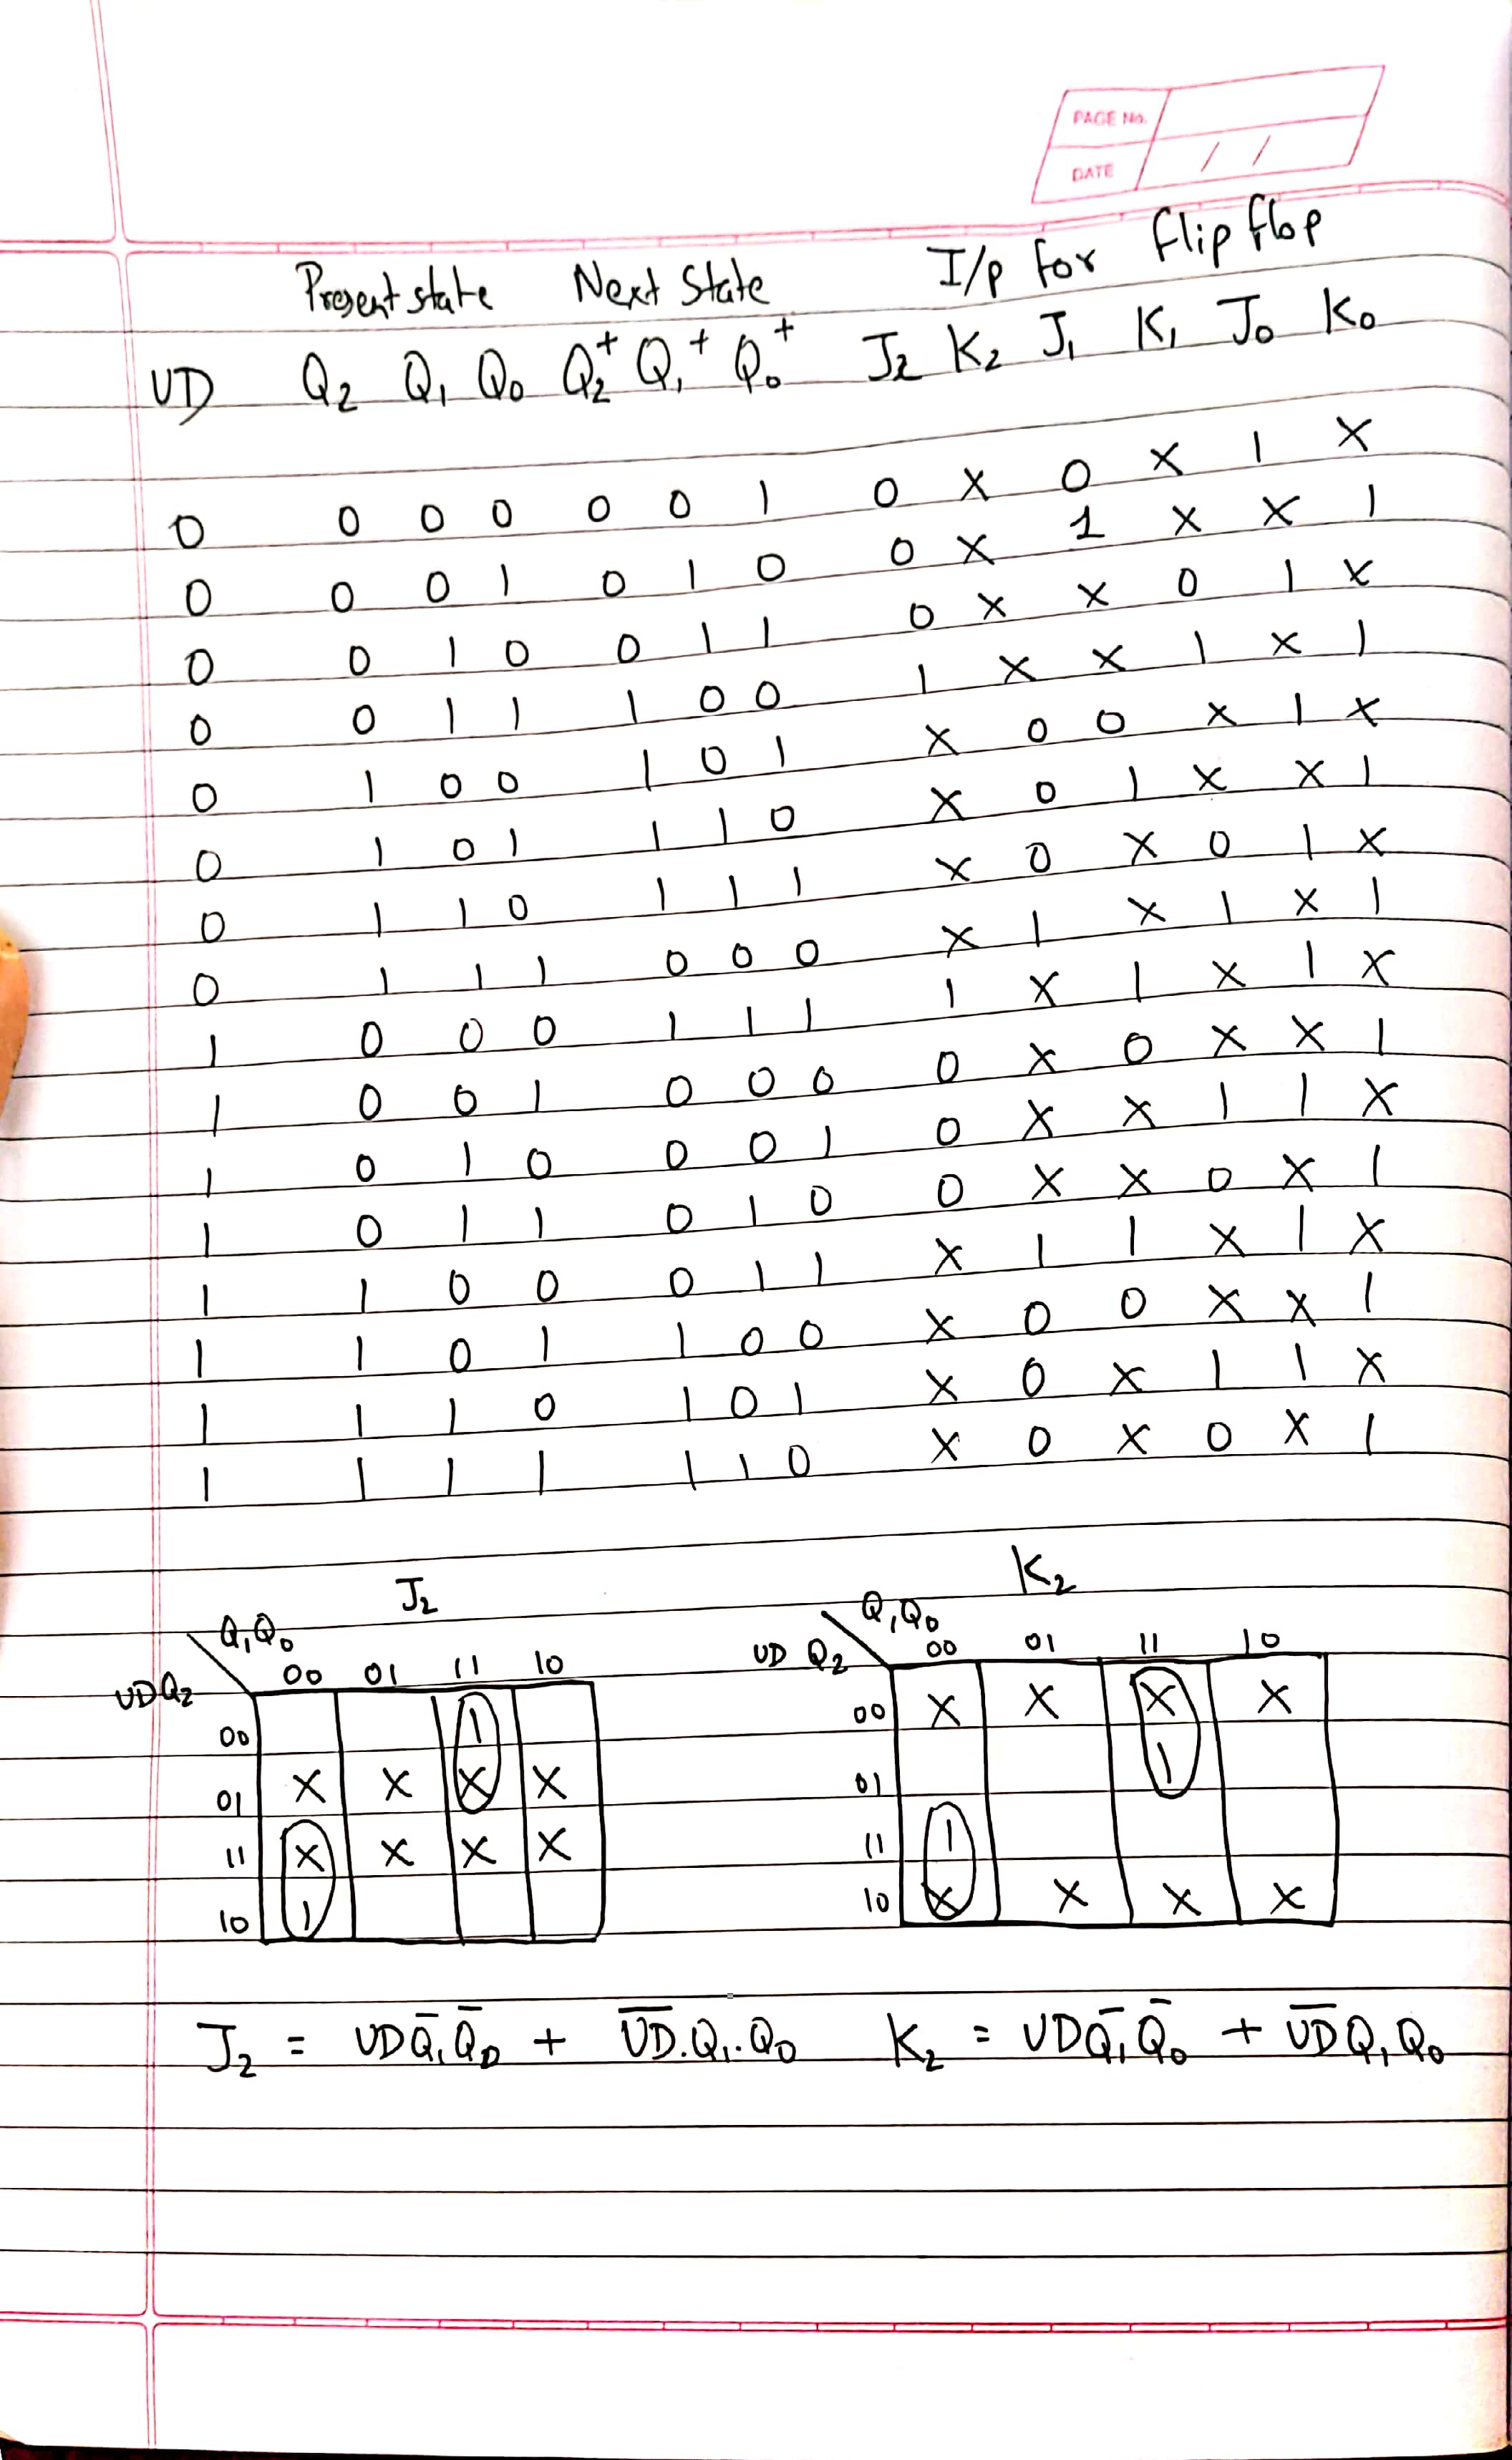 PAGE No.
DATE / /
Present state Next State I/p for flip flop
UD Q₂ Q₁ Q₀ Q₂⁺ Q₁⁺ Q₀⁺ J₂ K₂ J₁ K₁ J₀ K₀
0 0 0 0 0 0 1 0 X 0 X 1 X
0 0 0 1 0 1 0 0 X 1 X X 1
0 0 1 0 0 1 1 0 X X 0 1 X
0 0 1 1 1 0 0 1 X X 1 X 1
0 1 0 0 1 0 1 X 0 0 X 1 X
0 1 0 1 1 1 0 X 0 1 X X 1
0 1 1 0 1 1 1 X 0 X 0 1 X
0 1 1 1 0 0 0 X 1 X 1 X 1
1 0 0 0 1 1 1 1 X 1 X 1 X
1 0 0 1 0 0 0 0 X 0 X X 1
1 0 1 0 0 0 1 0 X X 1 1 X
1 0 1 1 0 1 0 0 X X 0 X 1
1 1 0 0 0 1 1 X 1 1 X 1 X
1 1 0 1 1 0 0 X 0 0 X X 1
1 1 1 0 1 0 1 X 0 X 1 1 X
1 1 1 1 1 1 0 X 0 X 0 X 1
J₂
Q₁Q₀
UDQ₂ 00 01 11 10
00 1
01 X X X X
11 X X X X
10 1
K₂
Q₁Q₀
UD Q₂ 00 01 11 10
00 X X X X
01 1
11 1
10 X X X X
J₂ = UDQ̅₁Q̅₀ + U̅D̅.Q₁.Q₀ K₂ = UDQ̅₁Q̅₀ + U̅D̅Q₁Q₀